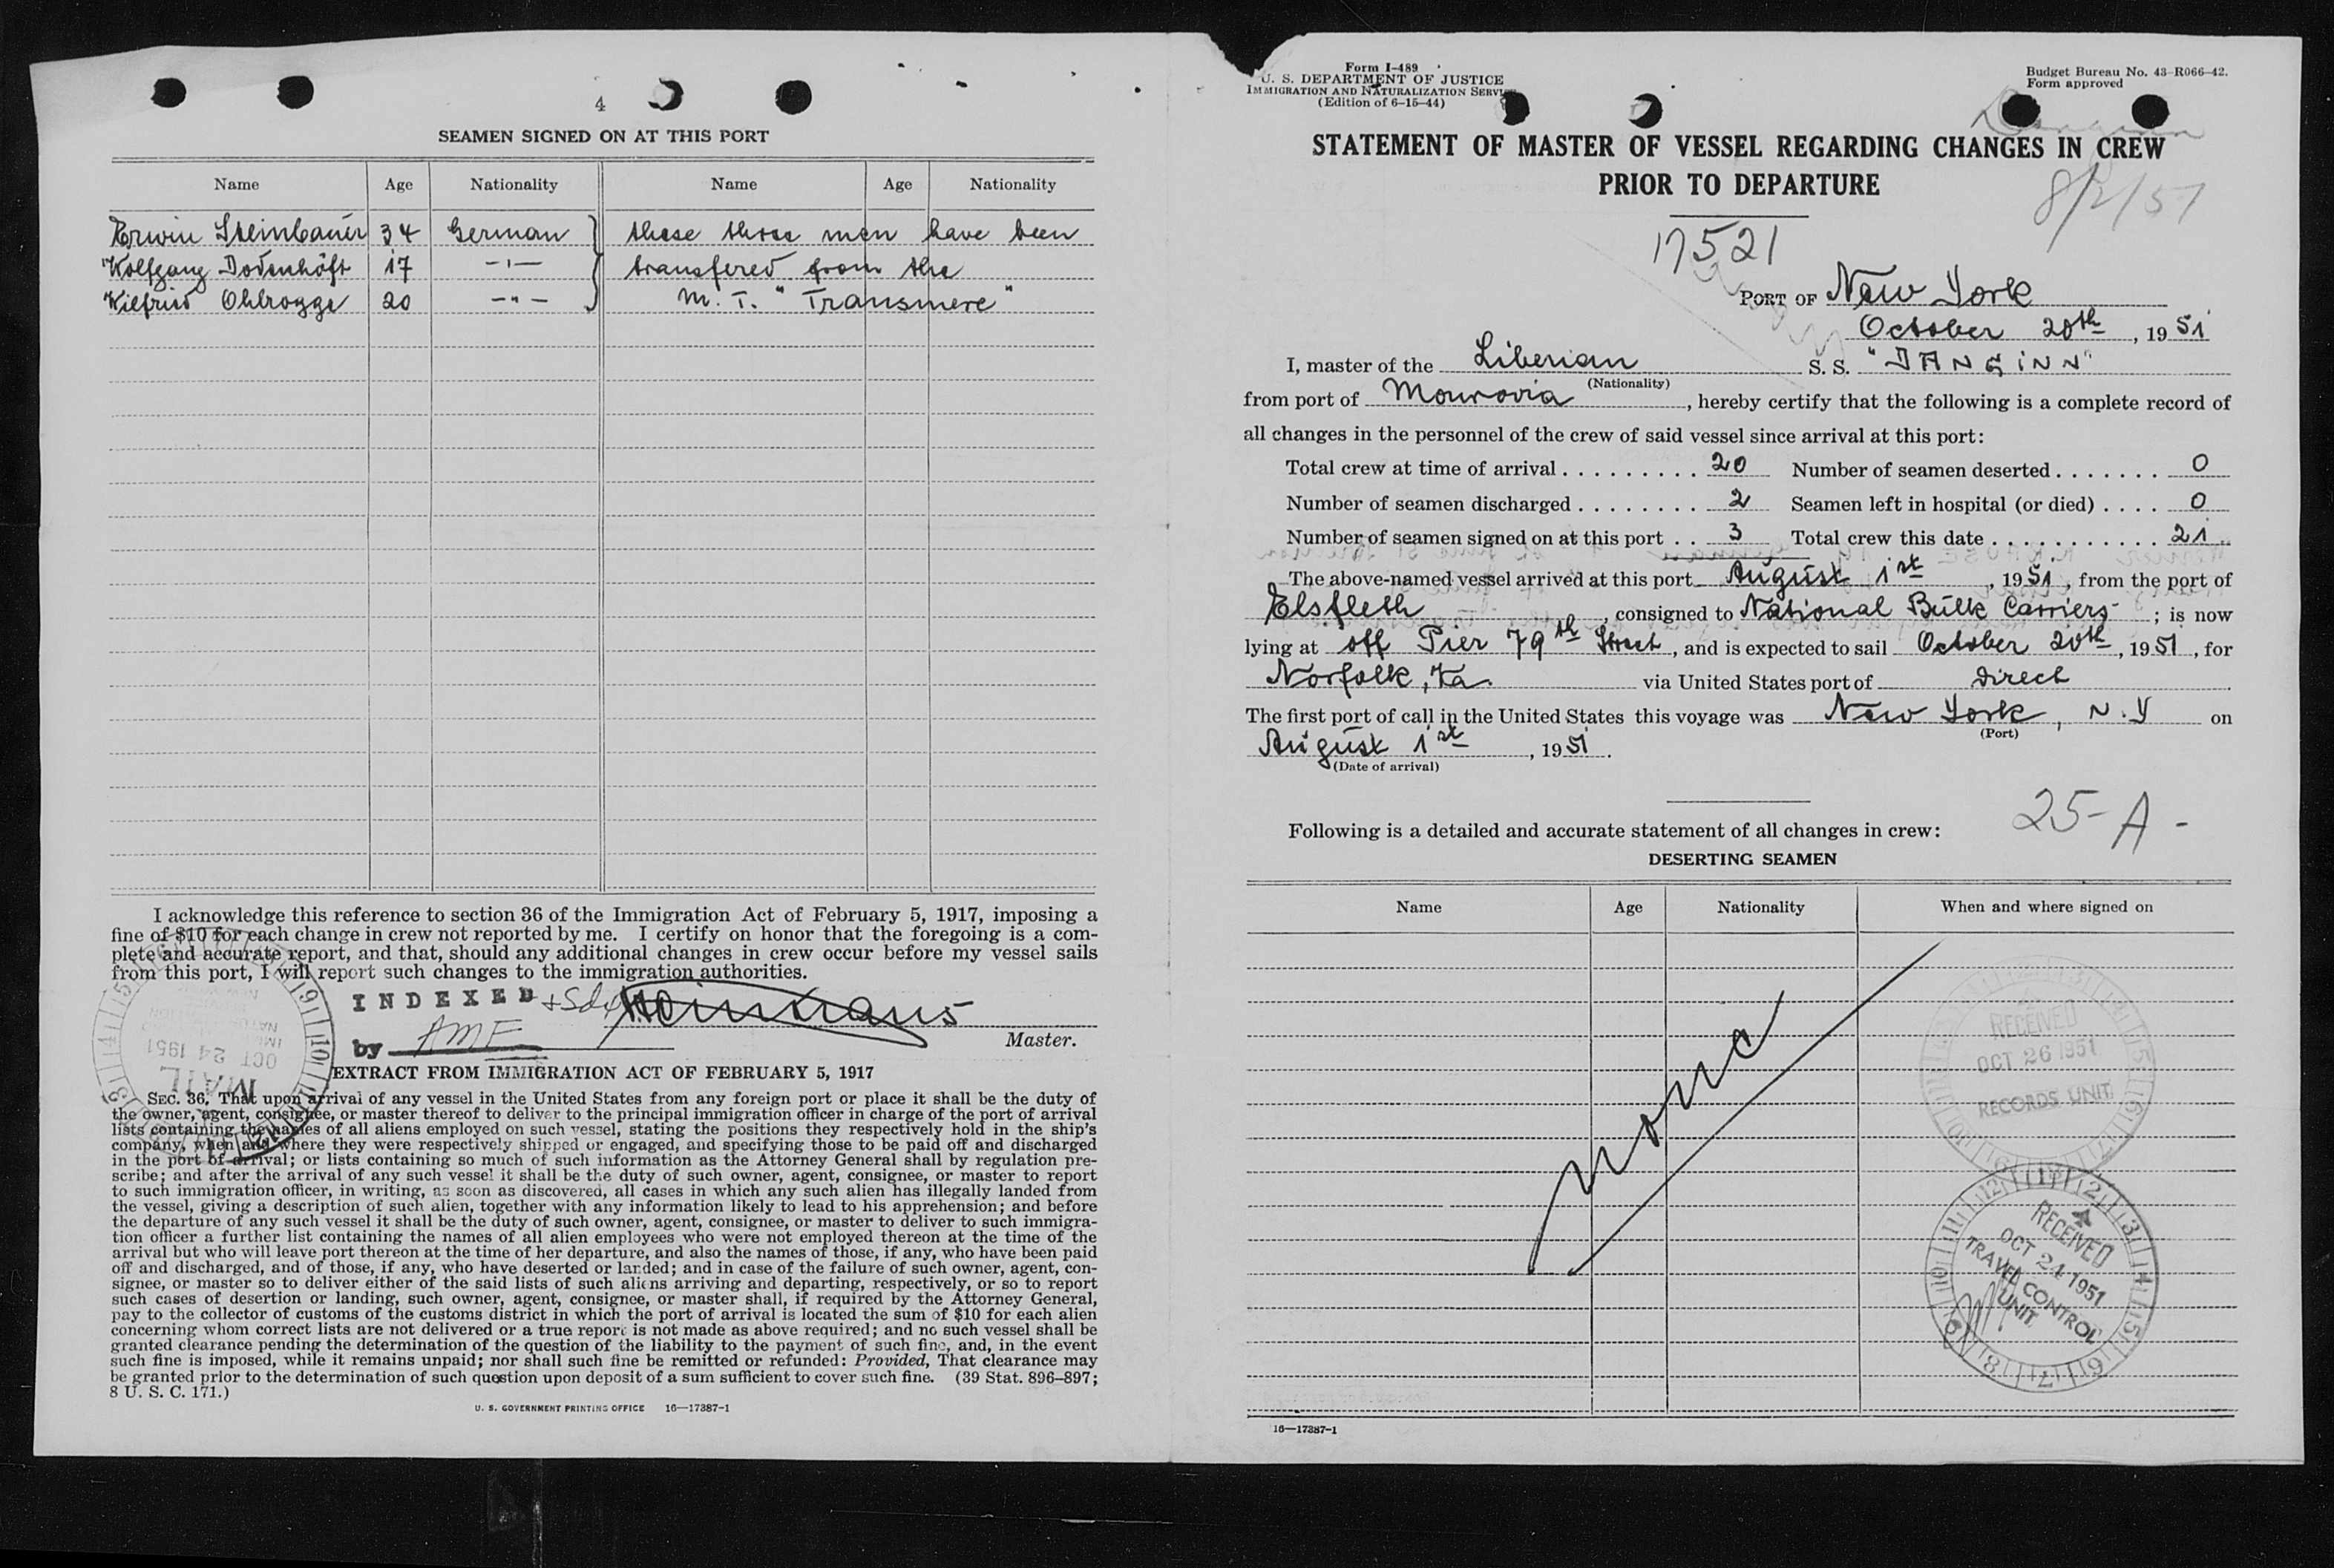 4
SEAMEN SIGNED ON AT THIS PORT
Name Age Nationality Name Age Nationality
Erwin Steinbauer 34 German these three men have been
Wolfgang Dodenhöft 17 -"- transfered from the
Wilfried Ohlrogge 20 -"- M. T. "Transmere"
I acknowledge this reference to section 36 of the Immigration Act of February 5, 1917, imposing a
fine of $10 for each change in crew not reported by me. I certify on honor that the foregoing is a com-
plete and accurate report, and that, should any additional changes in crew occur before my vessel sails
from this port, I will report such changes to the immigration authorities.
INDEXED
by AMF
Master.
OCT 24 1951
MAIL
EXTRACT FROM IMMIGRATION ACT OF FEBRUARY 5, 1917
SEC. 36. That upon arrival of any vessel in the United States from any foreign port or place it shall be the duty of
the owner, agent, consignee, or master thereof to deliver to the principal immigration officer in charge of the port of arrival
lists containing the names of all aliens employed on such vessel, stating the positions they respectively hold in the ship's
company, when and where they were respectively shipped or engaged, and specifying those to be paid off and discharged
in the port of arrival; or lists containing so much of such information as the Attorney General shall by regulation pre-
scribe; and after the arrival of any such vessel it shall be the duty of such owner, agent, consignee, or master to report
to such immigration officer, in writing, as soon as discovered, all cases in which any such alien has illegally landed from
the vessel, giving a description of such alien, together with any information likely to lead to his apprehension; and before
the departure of any such vessel it shall be the duty of such owner, agent, consignee, or master to deliver to such immigra-
tion officer a further list containing the names of all alien employees who were not employed thereon at the time of the
arrival but who will leave port thereon at the time of her departure, and also the names of those, if any, who have been paid
off and discharged, and of those, if any, who have deserted or landed; and in case of the failure of such owner, agent, con-
signee, or master so to deliver either of the said lists of such aliens arriving and departing, respectively, or so to report
such cases of desertion or landing, such owner, agent, consignee, or master shall, if required by the Attorney General,
pay to the collector of customs of the customs district in which the port of arrival is located the sum of $10 for each alien
concerning whom correct lists are not delivered or a true report is not made as above required; and no such vessel shall be
granted clearance pending the determination of the question of the liability to the payment of such fine, and, in the event
such fine is imposed, while it remains unpaid; nor shall such fine be remitted or refunded: Provided, That clearance may
be granted prior to the determination of such question upon deposit of a sum sufficient to cover such fine. (39 Stat. 896–897;
8 U. S. C. 171.)
U. S. GOVERNMENT PRINTING OFFICE 16—17387-1
Form I-489
U. S. DEPARTMENT OF JUSTICE
IMMIGRATION AND NATURALIZATION SERVICE
(Edition of 6-15-44)
Budget Bureau No. 43-R066-42.
Form approved
Danginn
STATEMENT OF MASTER OF VESSEL REGARDING CHANGES IN CREW
PRIOR TO DEPARTURE
8/2/51
17521
PORT OF New York
October 20th, 1951
I, master of the Liberian S. S. "DANGINN"
(Nationality)
from port of Monrovia, hereby certify that the following is a complete record of
all changes in the personnel of the crew of said vessel since arrival at this port:
Total crew at time of arrival . . . . . . . . . 20 Number of seamen deserted . . . . . . . 0
Number of seamen discharged . . . . . . . . 2 Seamen left in hospital (or died) . . . . 0
Number of seamen signed on at this port . . 3 Total crew this date . . . . . . . . . . . 21
The above-named vessel arrived at this port August 1st, 1951, from the port of
Elsfleth, consigned to National Bulk Carriers; is now
lying at off Pier 79th Street, and is expected to sail October 20th, 1951, for
Norfolk, Va. via United States port of direct
The first port of call in the United States this voyage was New York, N.Y on
(Port)
August 1st, 1951.
(Date of arrival)
25-A-
Following is a detailed and accurate statement of all changes in crew:
DESERTING SEAMEN
Name Age Nationality When and where signed on
none
RECEIVED
OCT 26 1951
RECORDS UNIT
RECEIVED
OCT 24 1951
TRAVEL CONTROL
UNIT
16—17387-1